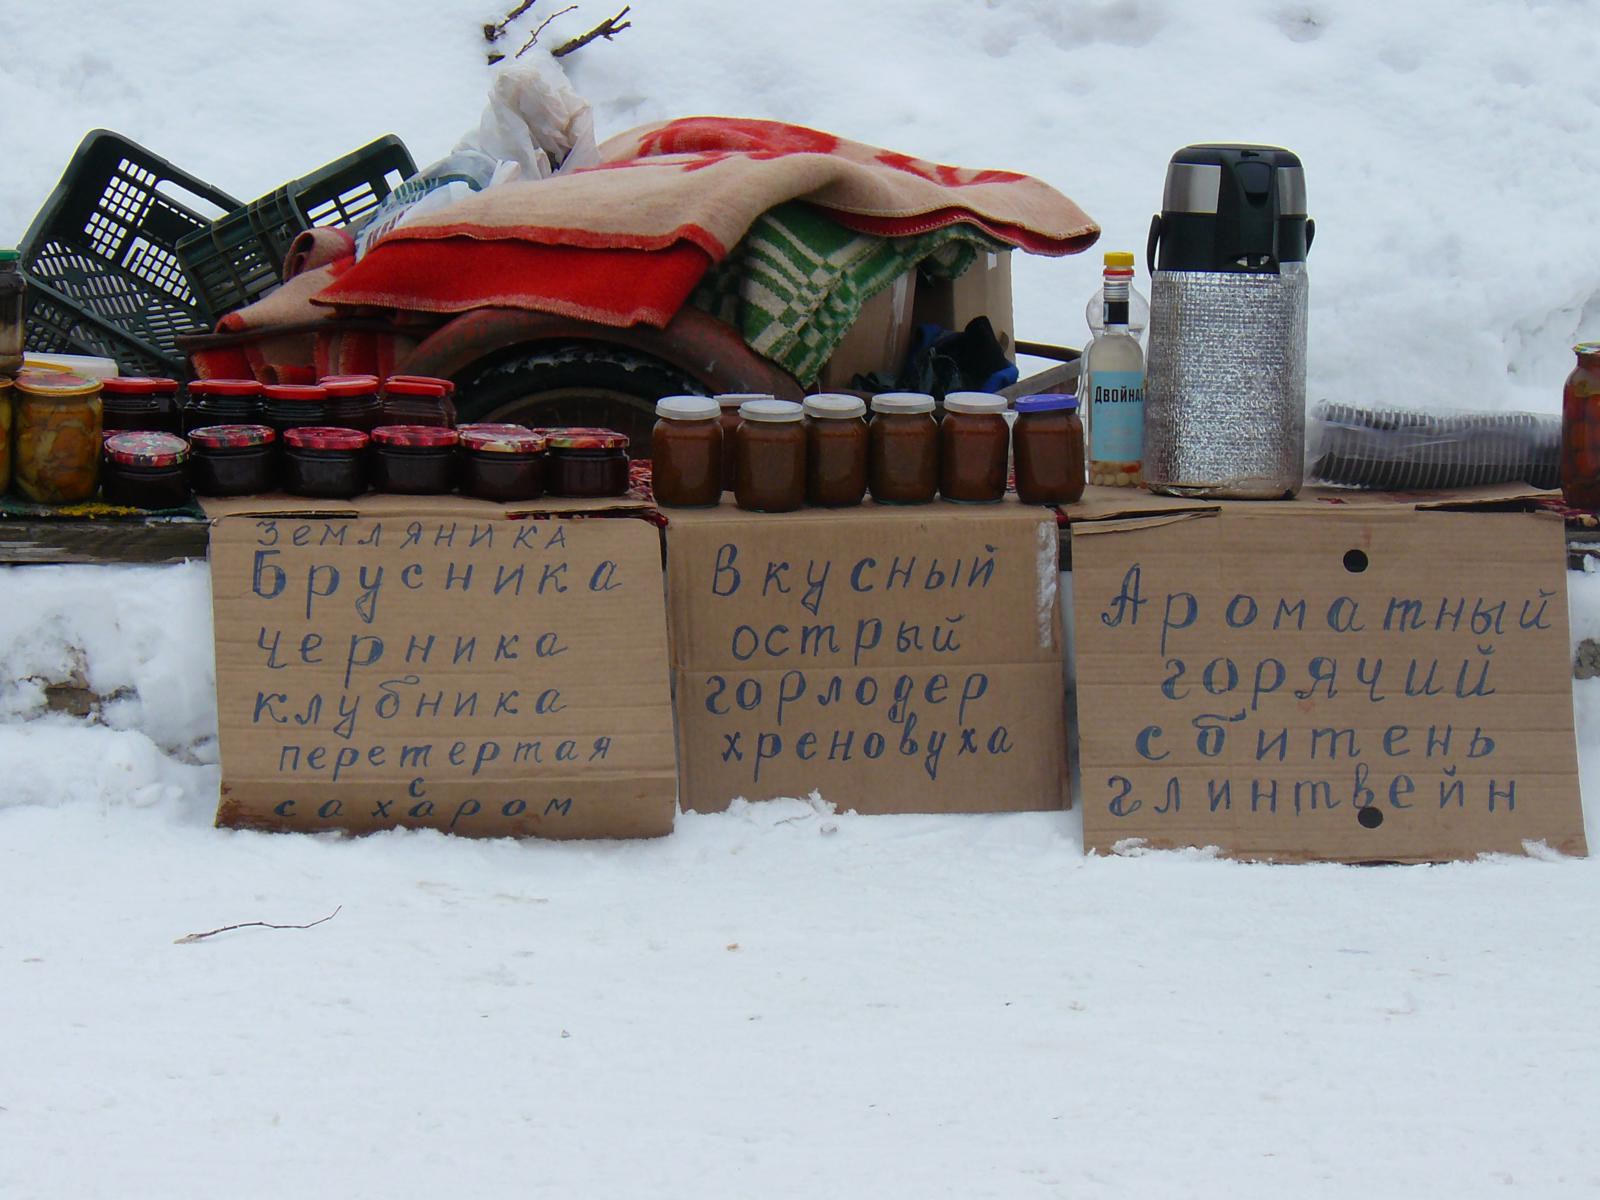 Двойная
Земляника
Брусника
Черника
клубника
перетертая
с
сахаром
Вкусный
острый
горлодер
хреновуха
Ароматный
горячий
сбитень
глинтвейн